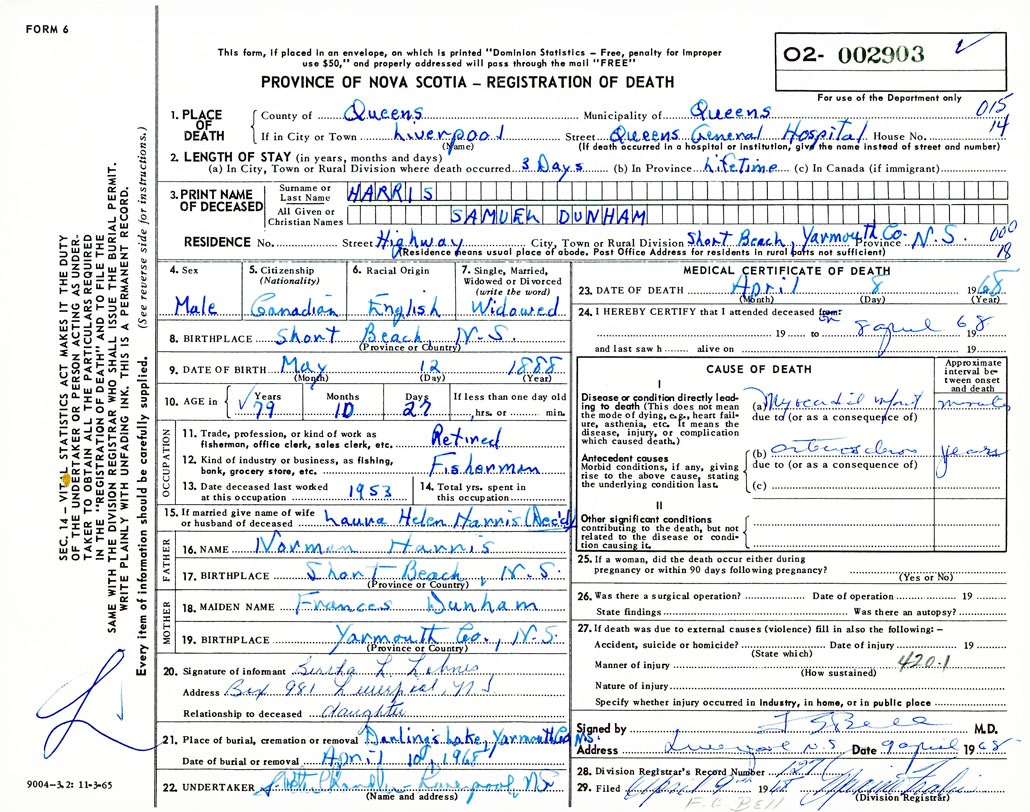 FORM 6
This form, if placed in an envelope, on which is printed "Dominion Statistics – Free, penalty for improper
use $50," and properly addressed will pass through the mail "FREE"
PROVINCE OF NOVA SCOTIA – REGISTRATION OF DEATH
02- 002903
For use of the Department only
1. PLACE OF DEATH
County of Queens Municipality of Queens 015
If in City or Town Liverpool Street Queens General Hospital House No. 14
(Name) (If death occurred in a hospital or institution, give the name instead of street and number)
2. LENGTH OF STAY (in years, months and days)
(a) In City, Town or Rural Division where death occurred 3 Days (b) In Province Lifetime (c) In Canada (if immigrant)
3. PRINT NAME OF DECEASED
Surname or Last Name HARRIS
All Given or Christian Names SAMUEL DUNHAM
RESIDENCE No. Street Highway City, Town or Rural Division Short Beach, Yarmouth Co. Province N.S. 000
(Residence means usual place of abode. Post Office Address for residents in rural parts not sufficient) 18
4. Sex Male
5. Citizenship (Nationality) Canadian
6. Racial Origin English
7. Single, Married, Widowed or Divorced (write the word) Widowed
8. BIRTHPLACE Short Beach, N.S.
(Province or Country)
9. DATE OF BIRTH May 12 1888
(Month) (Day) (Year)
10. AGE in Years 79 Months 10 Days 27 If less than one day old
hrs. or min.
OCCUPATION
11. Trade, profession, or kind of work as fisherman, office clerk, sales clerk, etc. Retired
12. Kind of industry or business, as fishing, bank, grocery store, etc. Fisherman
13. Date deceased last worked at this occupation 1953
14. Total yrs. spent in this occupation
15. If married give name of wife or husband of deceased Laura Helen Harris (Dec'd)
FATHER
16. NAME Norman Harris
17. BIRTHPLACE Short Beach, N.S.
(Province or Country)
MOTHER
18. MAIDEN NAME Frances Dunham
19. BIRTHPLACE Yarmouth Co., N.S.
(Province or Country)
20. Signature of informant Bertha L
Address Box 981 Liverpool, NS
Relationship to deceased daughter
21. Place of burial, cremation or removal Darlings Lake, Yarmouth Co. N.S.
Date of burial or removal April 10, 1968
22. UNDERTAKER Chandler Liverpool, NS
(Name and address)
MEDICAL CERTIFICATE OF DEATH
23. DATE OF DEATH April 8 1968
(Month) (Day) (Year)
24. I HEREBY CERTIFY that I attended deceased from: on
19 to 8 april 68 19
and last saw h alive on 19
CAUSE OF DEATH
Approximate interval between onset and death
I
Disease or condition directly leading to death (This does not mean the mode of dying, e.g., heart failure, asthenia, etc. It means the disease, injury, or complication which caused death.)
(a) Myocardial infarct minutes
due to (or as a consequence of)
Antecedent causes
Morbid conditions, if any, giving rise to the above cause, stating the underlying condition last.
(b) arteriosclerosis years
due to (or as a consequence of)
(c)
II
Other significant conditions
contributing to the death, but not related to the disease or condition causing it.
25. If a woman, did the death occur either during pregnancy or within 90 days following pregnancy?
(Yes or No)
26. Was there a surgical operation? Date of operation 19
State findings Was there an autopsy?
27. If death was due to external causes (violence) fill in also the following: –
Accident, suicide or homicide? Date of injury 19
(State which)
Manner of injury 420.1
(How sustained)
Nature of injury
Specify whether injury occurred in industry, in home, or in public place
Signed by F G Bell M.D.
Address Liverpool N.S. Date 9 april 1968
28. Division Registrar's Record Number
29. Filed April 9th 1968
F. G BELL (Division Registrar)
SEC. 14 – VITAL STATISTICS ACT MAKES IT THE DUTY
OF THE UNDERTAKER OR PERSON ACTING AS UNDER-
TAKER TO OBTAIN ALL THE PARTICULARS REQUIRED
IN THE "REGISTRATION OF DEATH" AND TO FILE THE
SAME WITH THE DIVISION REGISTRAR WHO SHALL ISSUE THE BURIAL PERMIT.
WRITE PLAINLY WITH UNFADING INK. THIS IS A PERMANENT RECORD.
Every item of information should be carefully supplied. (See reverse side for instructions.)
9004-3.2: 11-3-65